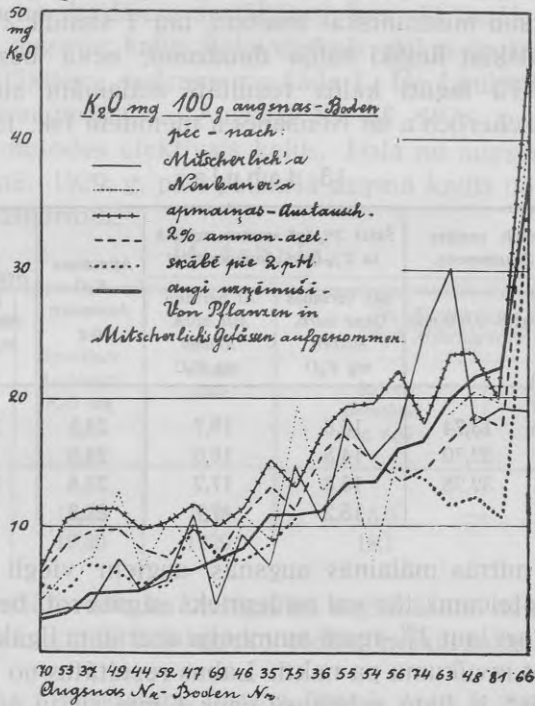 50
mg
K₂O
K₂O mg 100g augsnas-Boden
pēc - nach:
40
Mitscherlich'a
Neubauer'a
apmaiņas-Austausch.
2% ammon. acet.
30
augi uzņēmuši-
Von Pflanzen in
Mitscherlichs Gefässen aufgenommen.
20
10
70 53 71 43 44 52 47 69 46 35 75 36 55 57 56 74 63 48 81 66
Augsnas Nr - Boden Nr